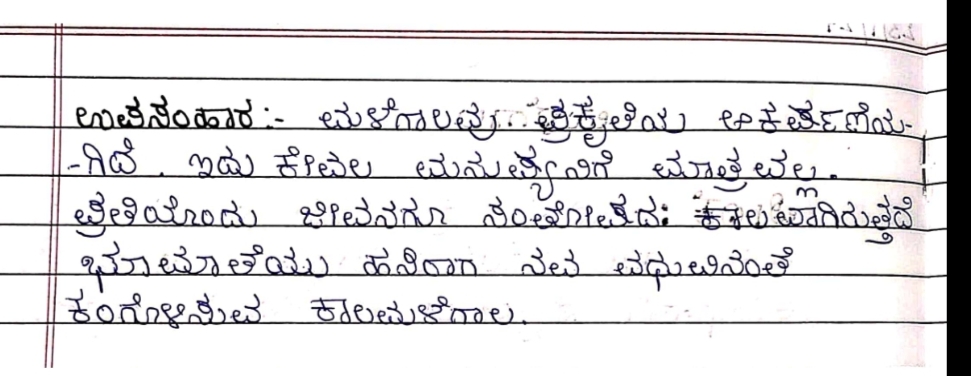 ಉಪಸಂಹಾರ:- ಮಳೆಗಾಲವು ಪ್ರಕೃತಿಯ ಆಕರ್ಷಣೆಯ-
-ಗಿದೆ. ಇದು ಕೇವಲ ಮನುಷ್ಯನಿಗೆ ಮಾತ್ರವಲ್ಲ.
ಪ್ರತಿಯೊಂದು ಜೀವನಗೂ ಸಂತೋಷದ ಕಾಲವಾಗಿರುತ್ತದೆ
ಭೂಮಾತೆಯು ಹಸಿರಾಗಿ ನವ ವಧುವಿನಂತೆ
ಕಂಗೊಳಿಸುವ ಕಾಲಮಳೆಗಾಲ.